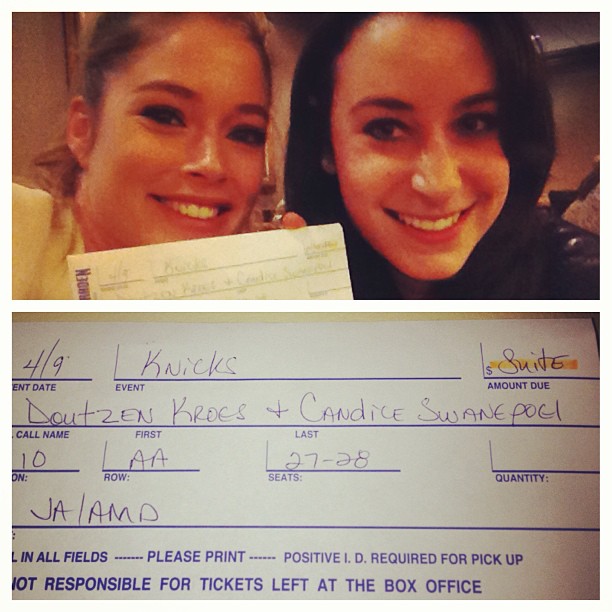 GARDEN
4/9 Knicks
Doutzen Kroes + Candice Swanepoel
4/9 Knicks $ Suite
ENT DATE EVENT AMOUNT DUE
Doutzen Kroes + Candice Swanepoel
CALL NAME FIRST LAST
10 AA 27-28
ON: ROW: SEATS: QUANTITY:
JA/AMD
L IN ALL FIELDS ------- PLEASE PRINT ------ POSITIVE I. D. REQUIRED FOR PICK UP
NOT RESPONSIBLE FOR TICKETS LEFT AT THE BOX OFFICE